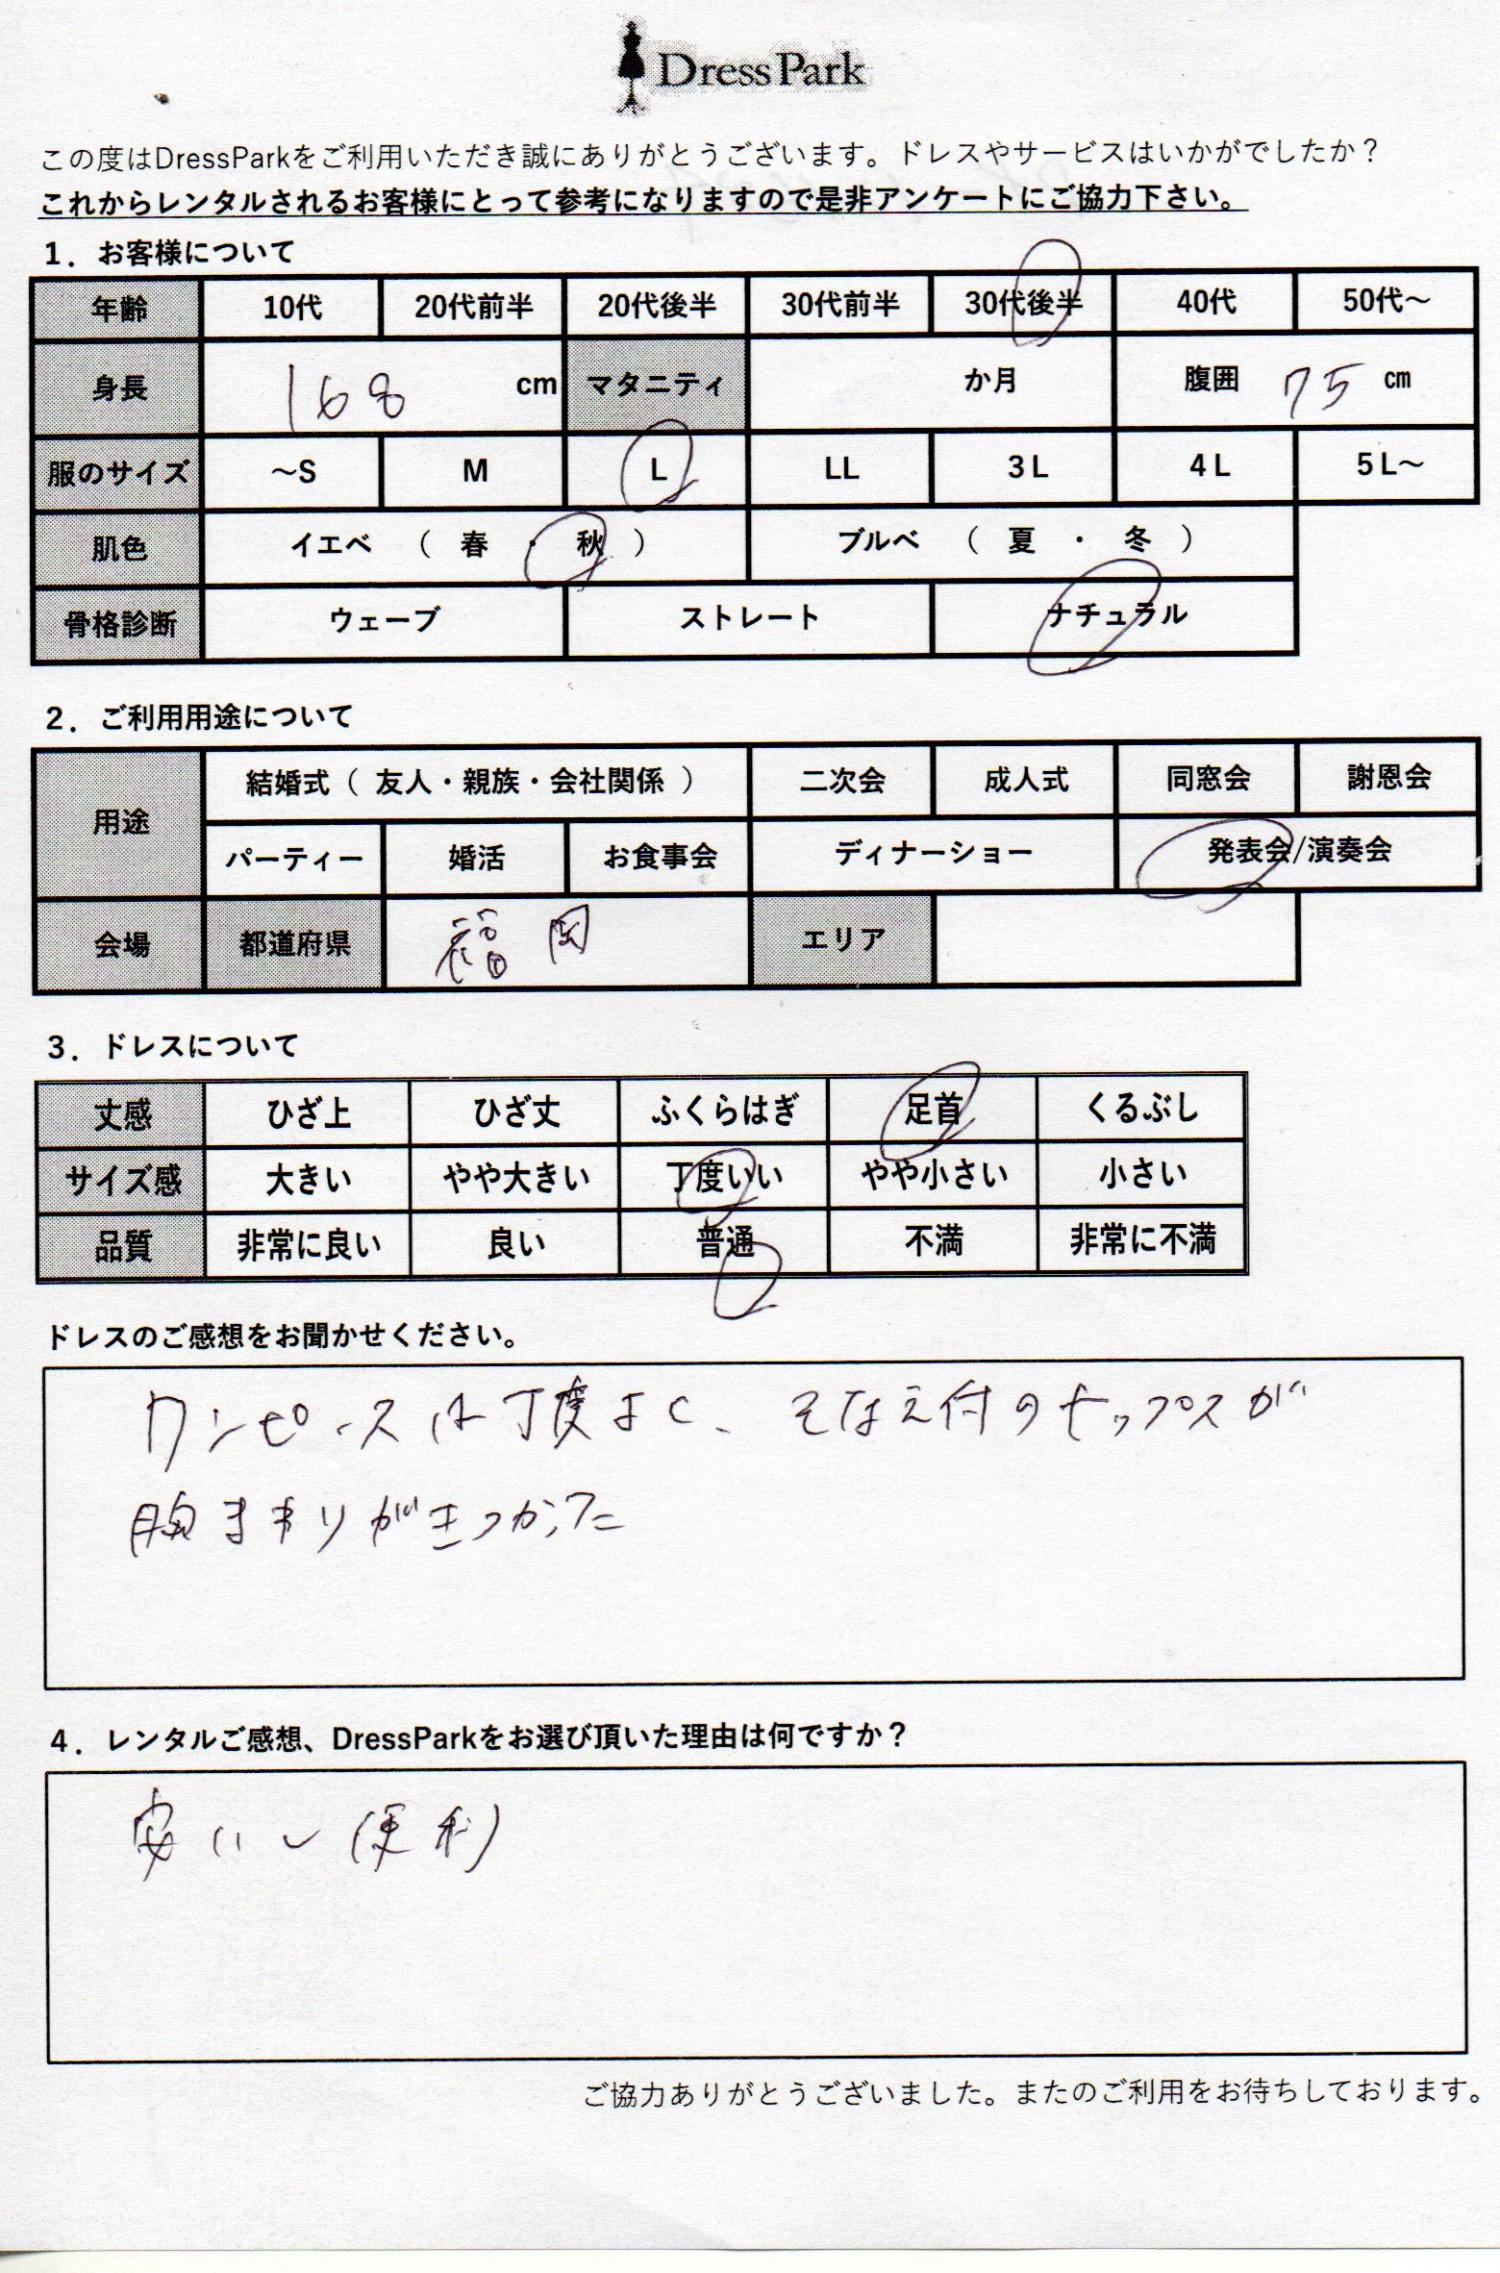 DressPark
この度はDressParkをご利用いただき誠にありがとうございます。ドレスやサービスはいかがでしたか？
これからレンタルされるお客様にとって参考になりますので是非アンケートにご協力下さい。
1．お客様について
年齢 10代 20代前半 20代後半 30代前半 30代後半 40代 50代～
身長 168 cm マタニティ か月 腹囲 75 ㎝
服のサイズ ～S M L LL 3L 4L 5L～
肌色 イエベ （ 春 ・ 秋 ） ブルベ （ 夏 ・ 冬 ）
骨格診断 ウェーブ ストレート ナチュラル
2．ご利用用途について
用途 結婚式（ 友人・親族・会社関係 ） 二次会 成人式 同窓会 謝恩会
パーティー 婚活 お食事会 ディナーショー 発表会/演奏会
会場 都道府県 福岡 エリア
3．ドレスについて
丈感 ひざ上 ひざ丈 ふくらはぎ 足首 くるぶし
サイズ感 大きい やや大きい 丁度いい やや小さい 小さい
品質 非常に良い 良い 普通 不満 非常に不満
ドレスのご感想をお聞かせください。
ワンピースは丁度よく、そなえ付のトップスが
胸まわりがきつかった
4．レンタルご感想、DressParkをお選び頂いた理由は何ですか？
安いし便利
ご協力ありがとうございました。またのご利用をお待ちしております。